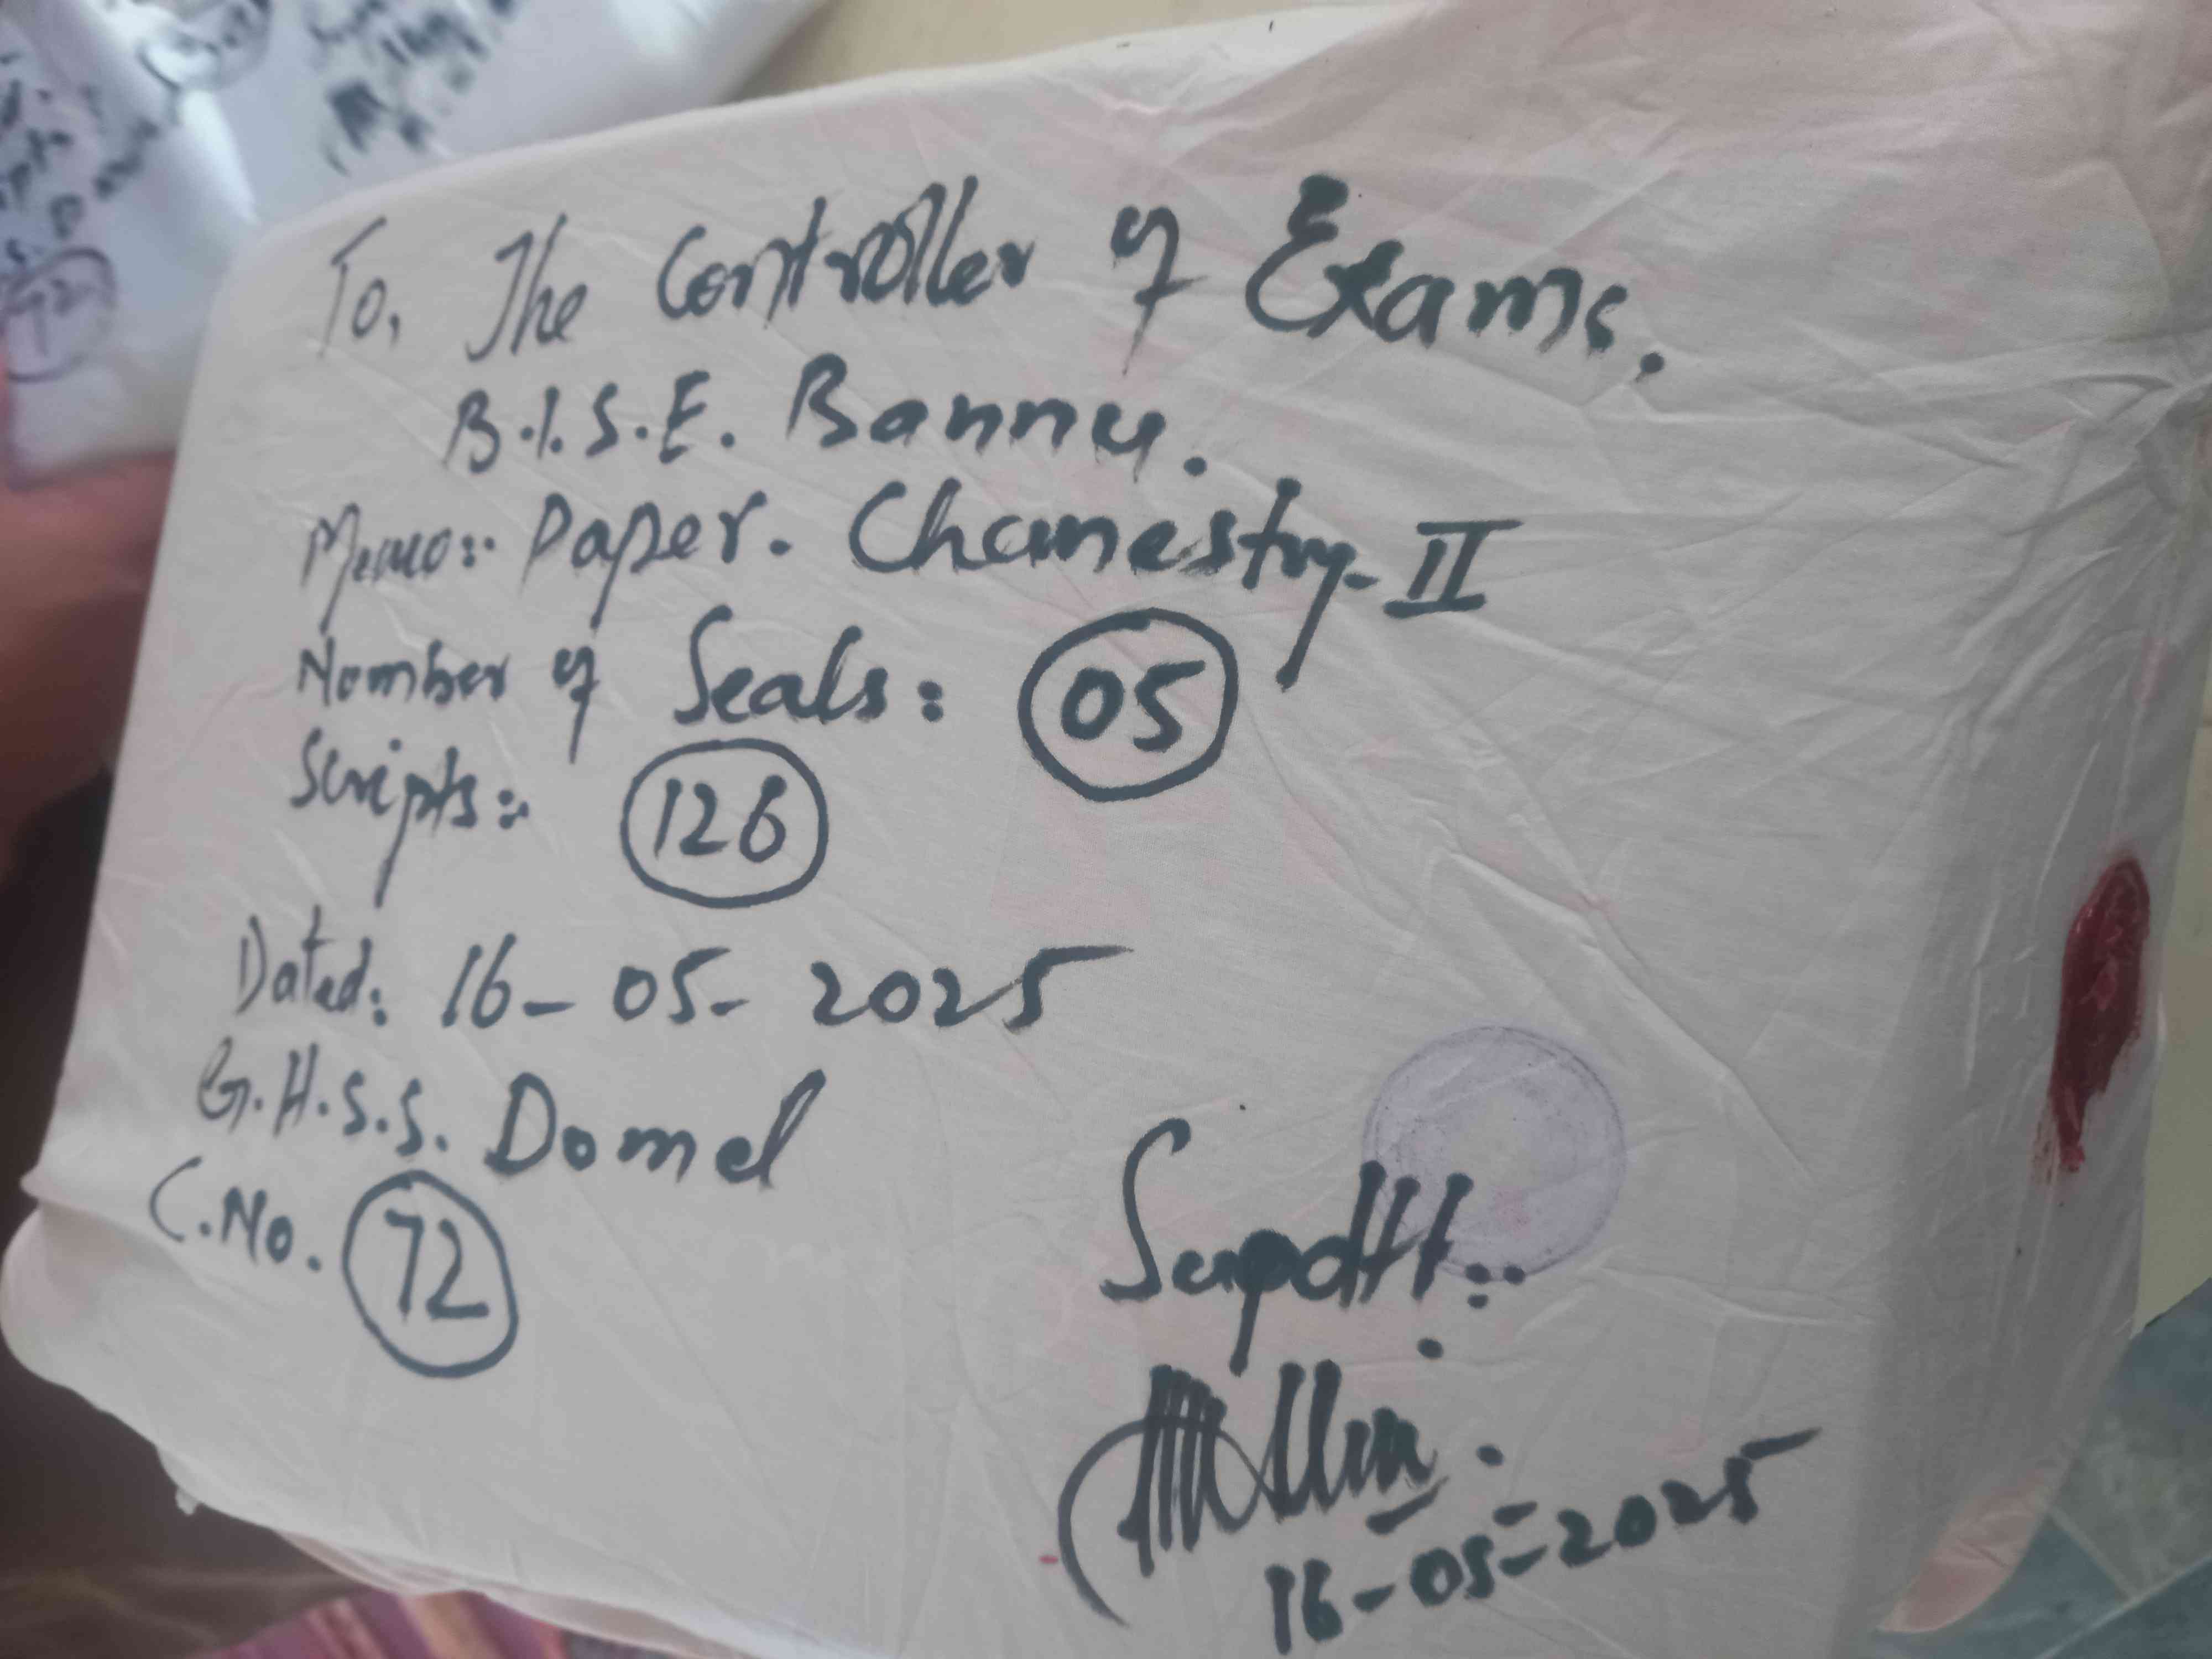 To, The Controller of Exams.
B.I.S.E. Bannu.
Memo:. Paper. Chamestry-II
Nomber of Seals: 05
Scripts:. 126
Dated: 16-05-2025
G.H.S.S. Domel
C.No. 72
Supdtt:.
16-05-2025